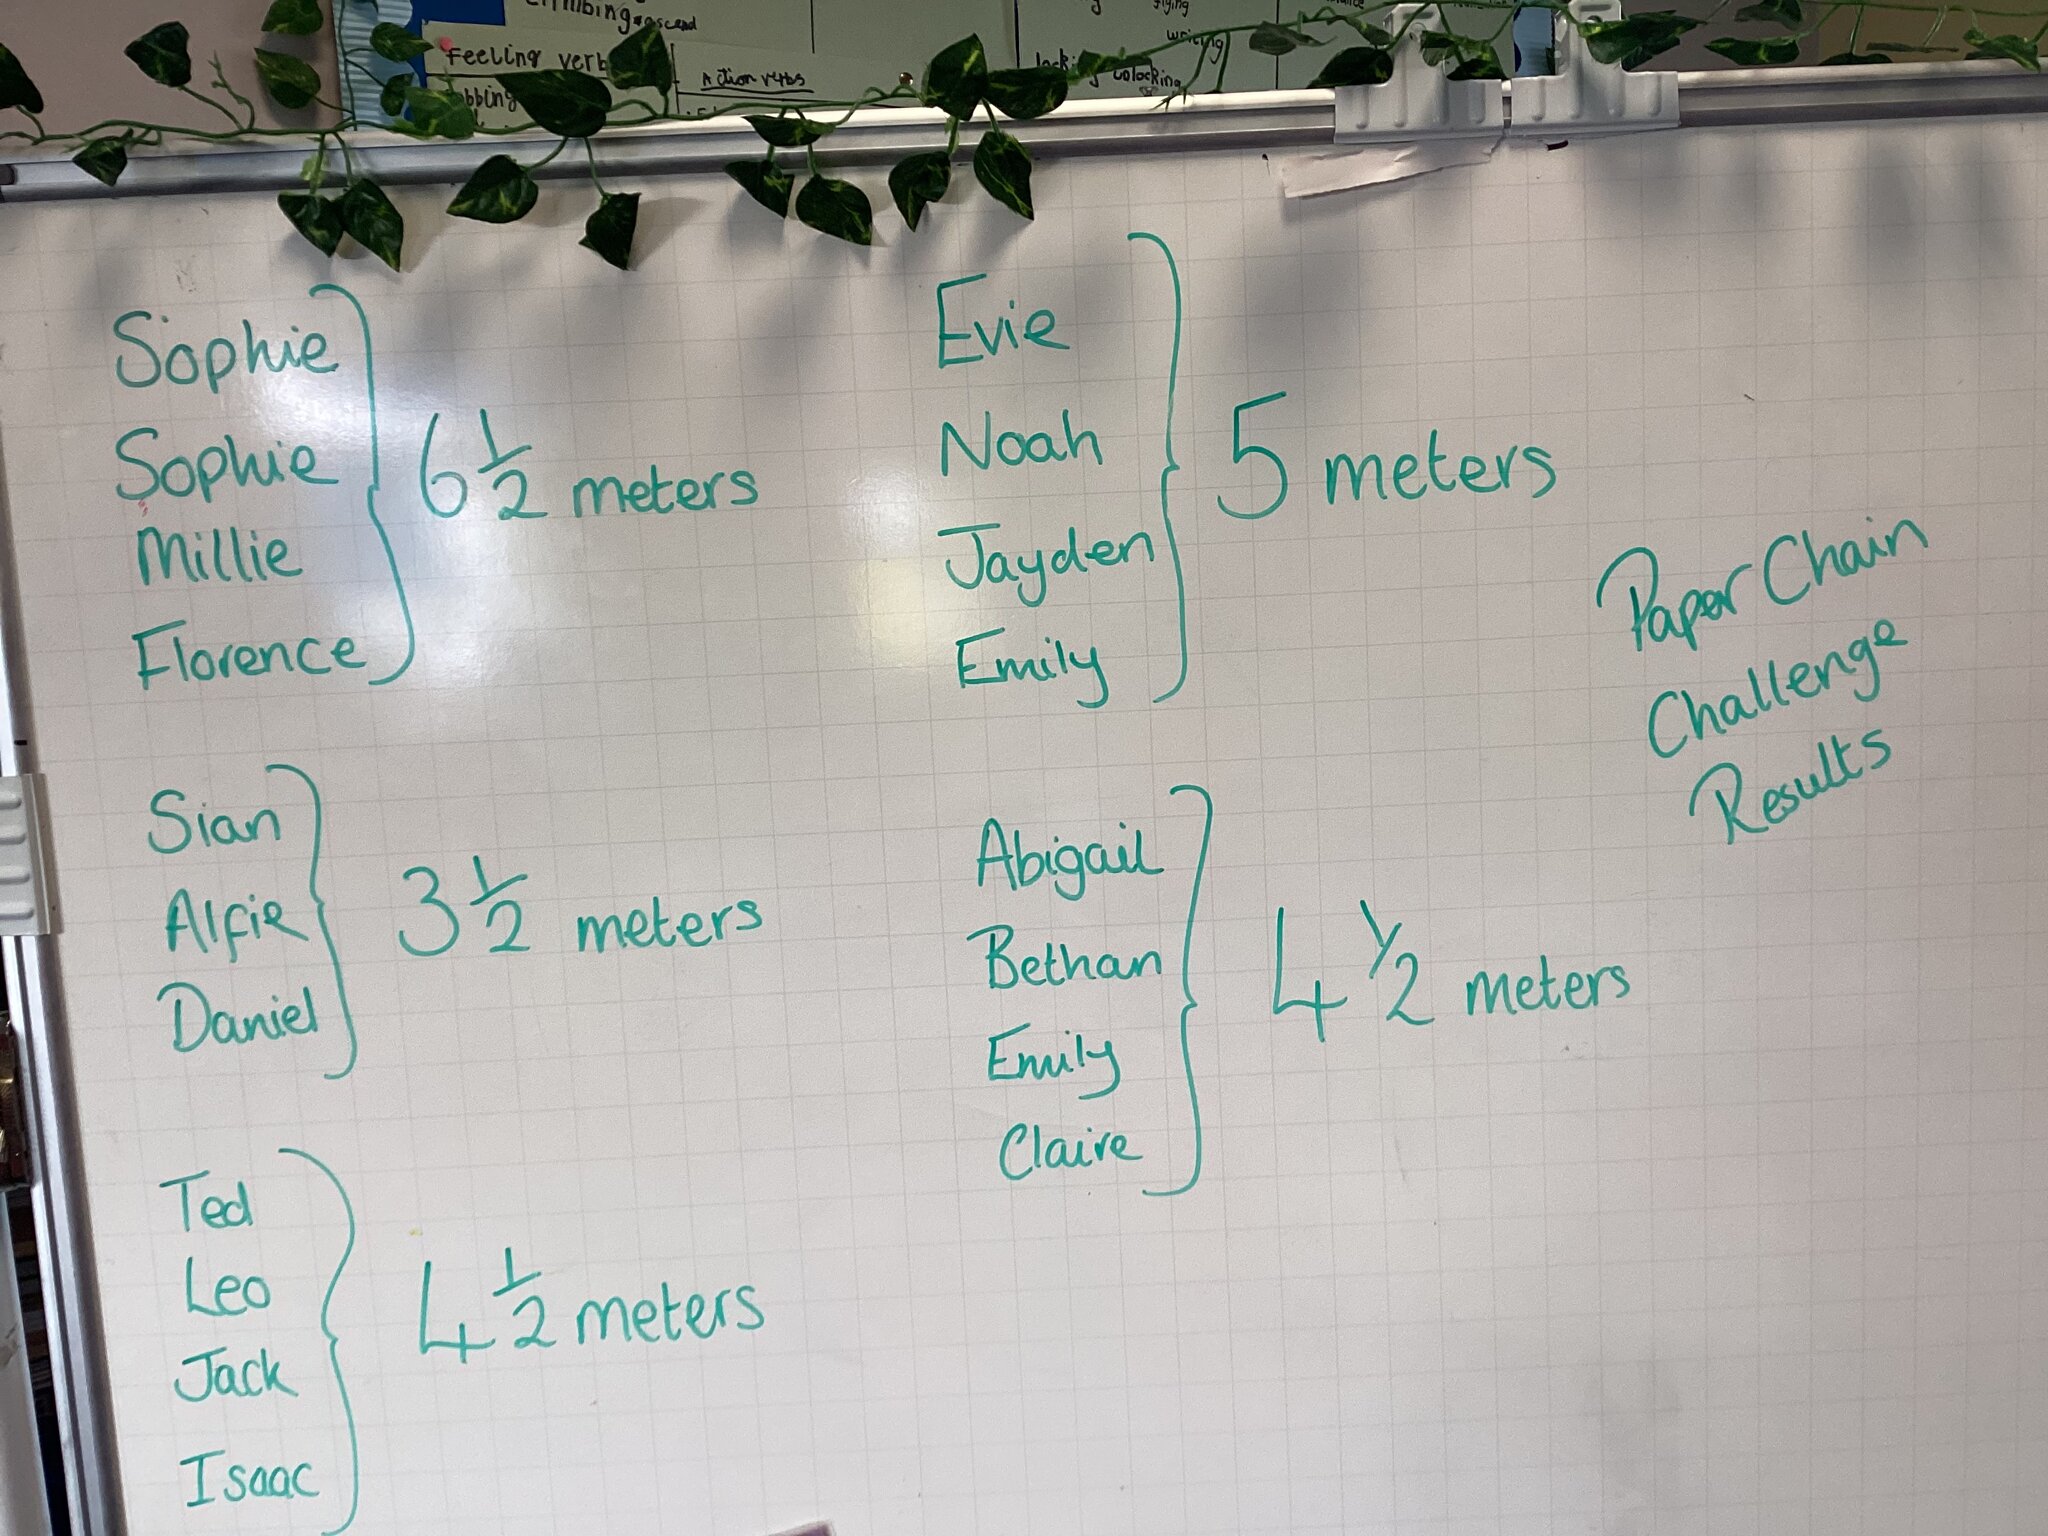 ascend
Feeling verb
Action verbs
flying
writing
unlocking
Sophie
Sophie
Millie
Florence
6 1/2 meters
Evie
Noah
Jayden
Emily
5 meters
Paper Chain
Challenge
Results
Sian
Alfie
Daniel
3 1/2 meters
Abigail
Bethan
Emily
Claire
4 1/2 meters
Ted
Leo
Jack
Isaac
4 1/2 meters